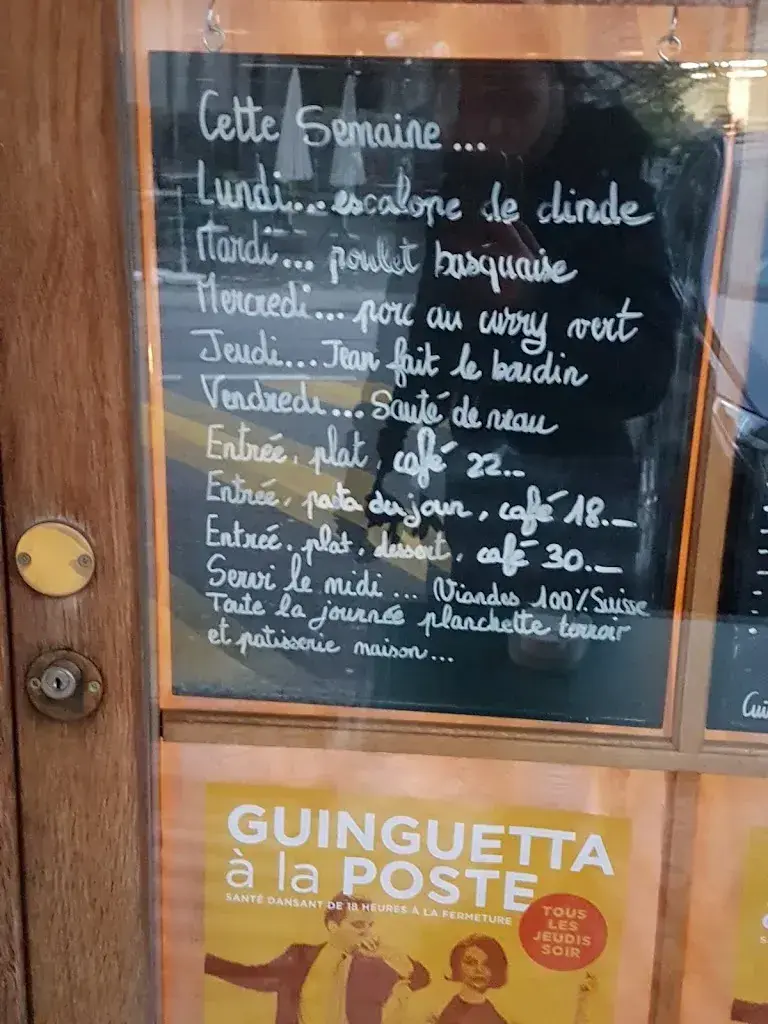 Cette Semaine...
Lundi... escalope de dinde
Mardi... poulet basquaise
Mercredi... porc au curry vert
Jeudi... Jean fait le boudin
Vendredi... Sauté de veau
Entrée, plat, café 22.-
Entrée, pasta du jour, café 18.-
Entrée, plat, dessert, café 30.-
Servi le midi ... Viandes 100% Suisse
Toute la journée planchette terroir
et patisserie maison...
GUINGUETTA
à la POSTE
SANTÉ DANSANT DE 18 HEURES À LA FERMETURE
TOUS
LES
JEUDIS
SOIR